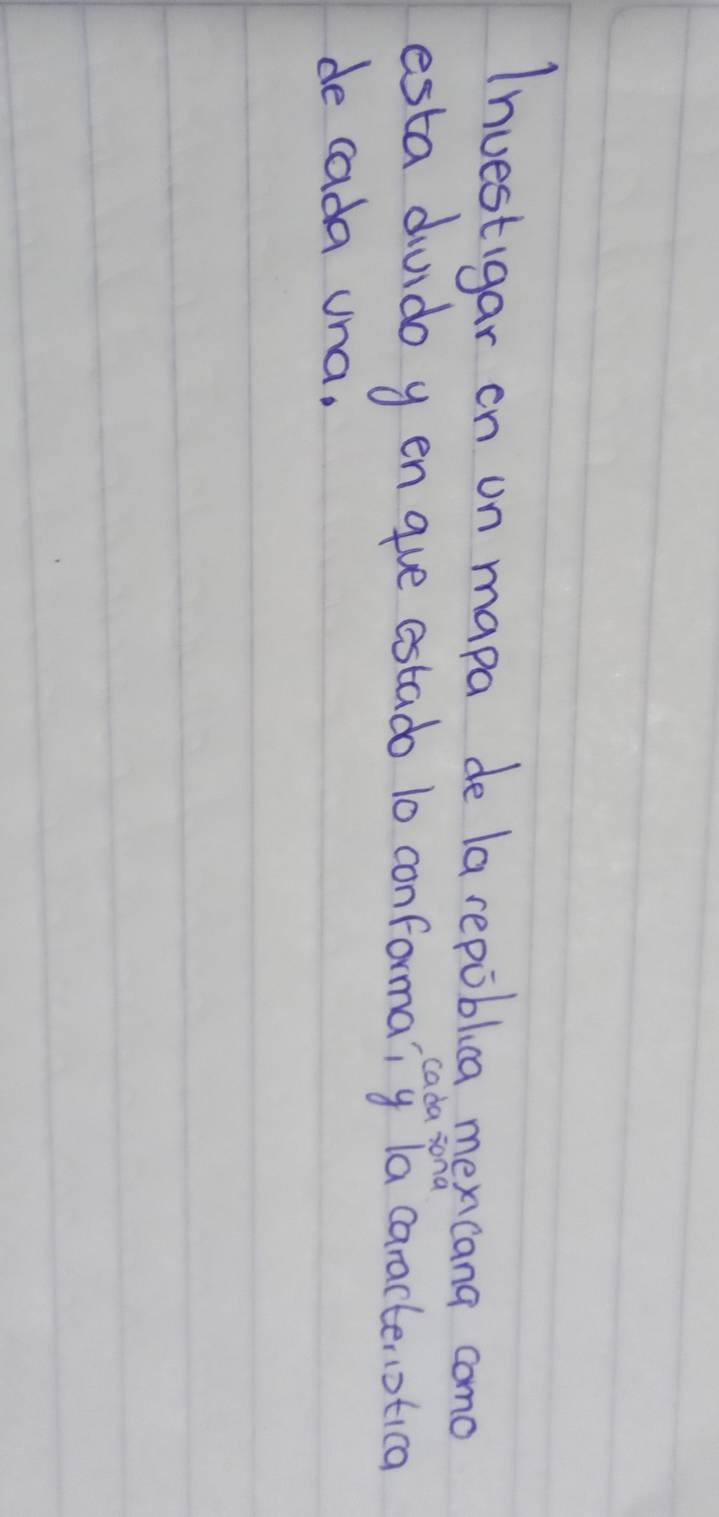 Investigar en un mapa de la república mexicana como
esta divido y en que estado lo conforma, y la caracteristica
cada zona
de cada una.